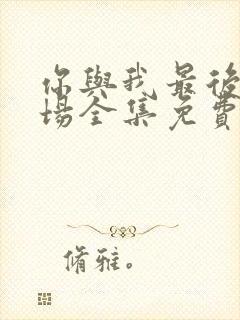 你與我最後
場全集免費
脩雅。